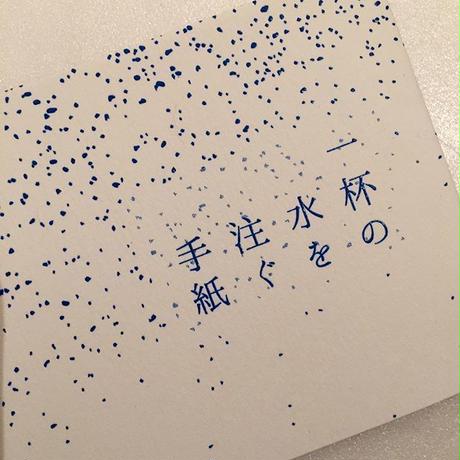 一杯の
水を
注ぐ
手紙